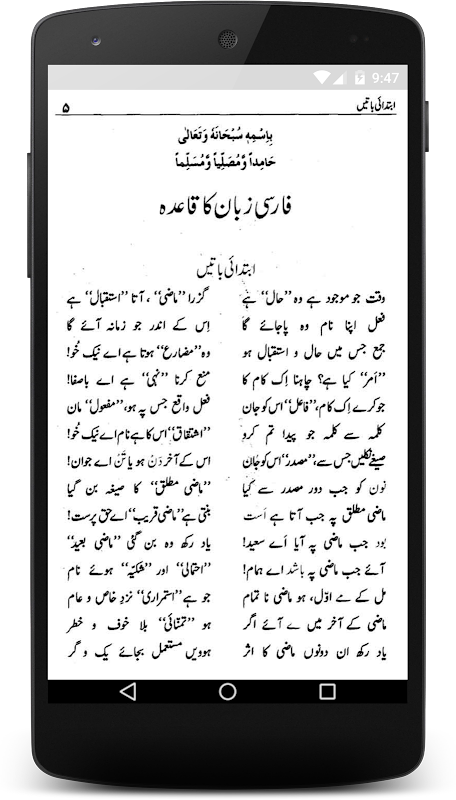 9:47
ابتدائی باتیں ۵
بِاِسْمِہٖ سُبْحَانَہٗ وَتَعَالٰی
حَامِداً وَّمُصَلِّیاً وَّمُسَلِّماً
فارسی زبان کا قاعدہ
ابتدائی باتیں
وقت جو موجود ہے وہ ”حال“ ہے گزرا ”ماضی“، آتا ”استقبال“ ہے
فعل اپنا نام وہ پاجائے گا اِس کے اندر جو زمانہ آئے گا
جمع جس میں حال و استقبال ہو وہ ”مضارع“ ہوتا ہے اے نیک خُو!
”اَمر“ کیا ہے؟ چاہنا اِک کام کا منع کرنا ”نہی“ ہے اے باصفا!
جو کرے اِک کام، ”فاعل“ اس کو جان فعل واقع جس پہ ہو، ”مفعول“ مان
کلمہ سے کلمہ جو پیدا تم کرو ”اشتقاق“ اس کا ہے نام اے نیک خُو!
صیغے نکلیں جس سے، ”مصدر“ اس کو جَان اس کے آخر دَنْ ہو یا تَنْ اے جوان!
نون کو جب دور مصدر سے کیا ”ماضی مطلق“ کا صیغہ بن گیا
ماضی مطلق پہ جب آتا ہے اَست بنتی ہے ”ماضی قریب“ اے حق پرست!
بود جب ماضی پہ آیا اَے سعید! یاد رکھ وہ بن گئی ”ماضی بعید“
آئے جب ماضی پہ باشد اے ہمام! ”احتمالی“ اور ”شکیّہ“ ہوئے نام
مل کے مے اوّل، ہو ماضی نا تمام جو ہے ”استمراری“ نزدِ خاص و عام
ماضی کے آخر میں ے آئے اگر ہو ”تمنّائی“ بلا خوف و خطر
یاد رکھ ان دونوں ماضی کا اثر ہوویں مستعمل بجائے یک و گر